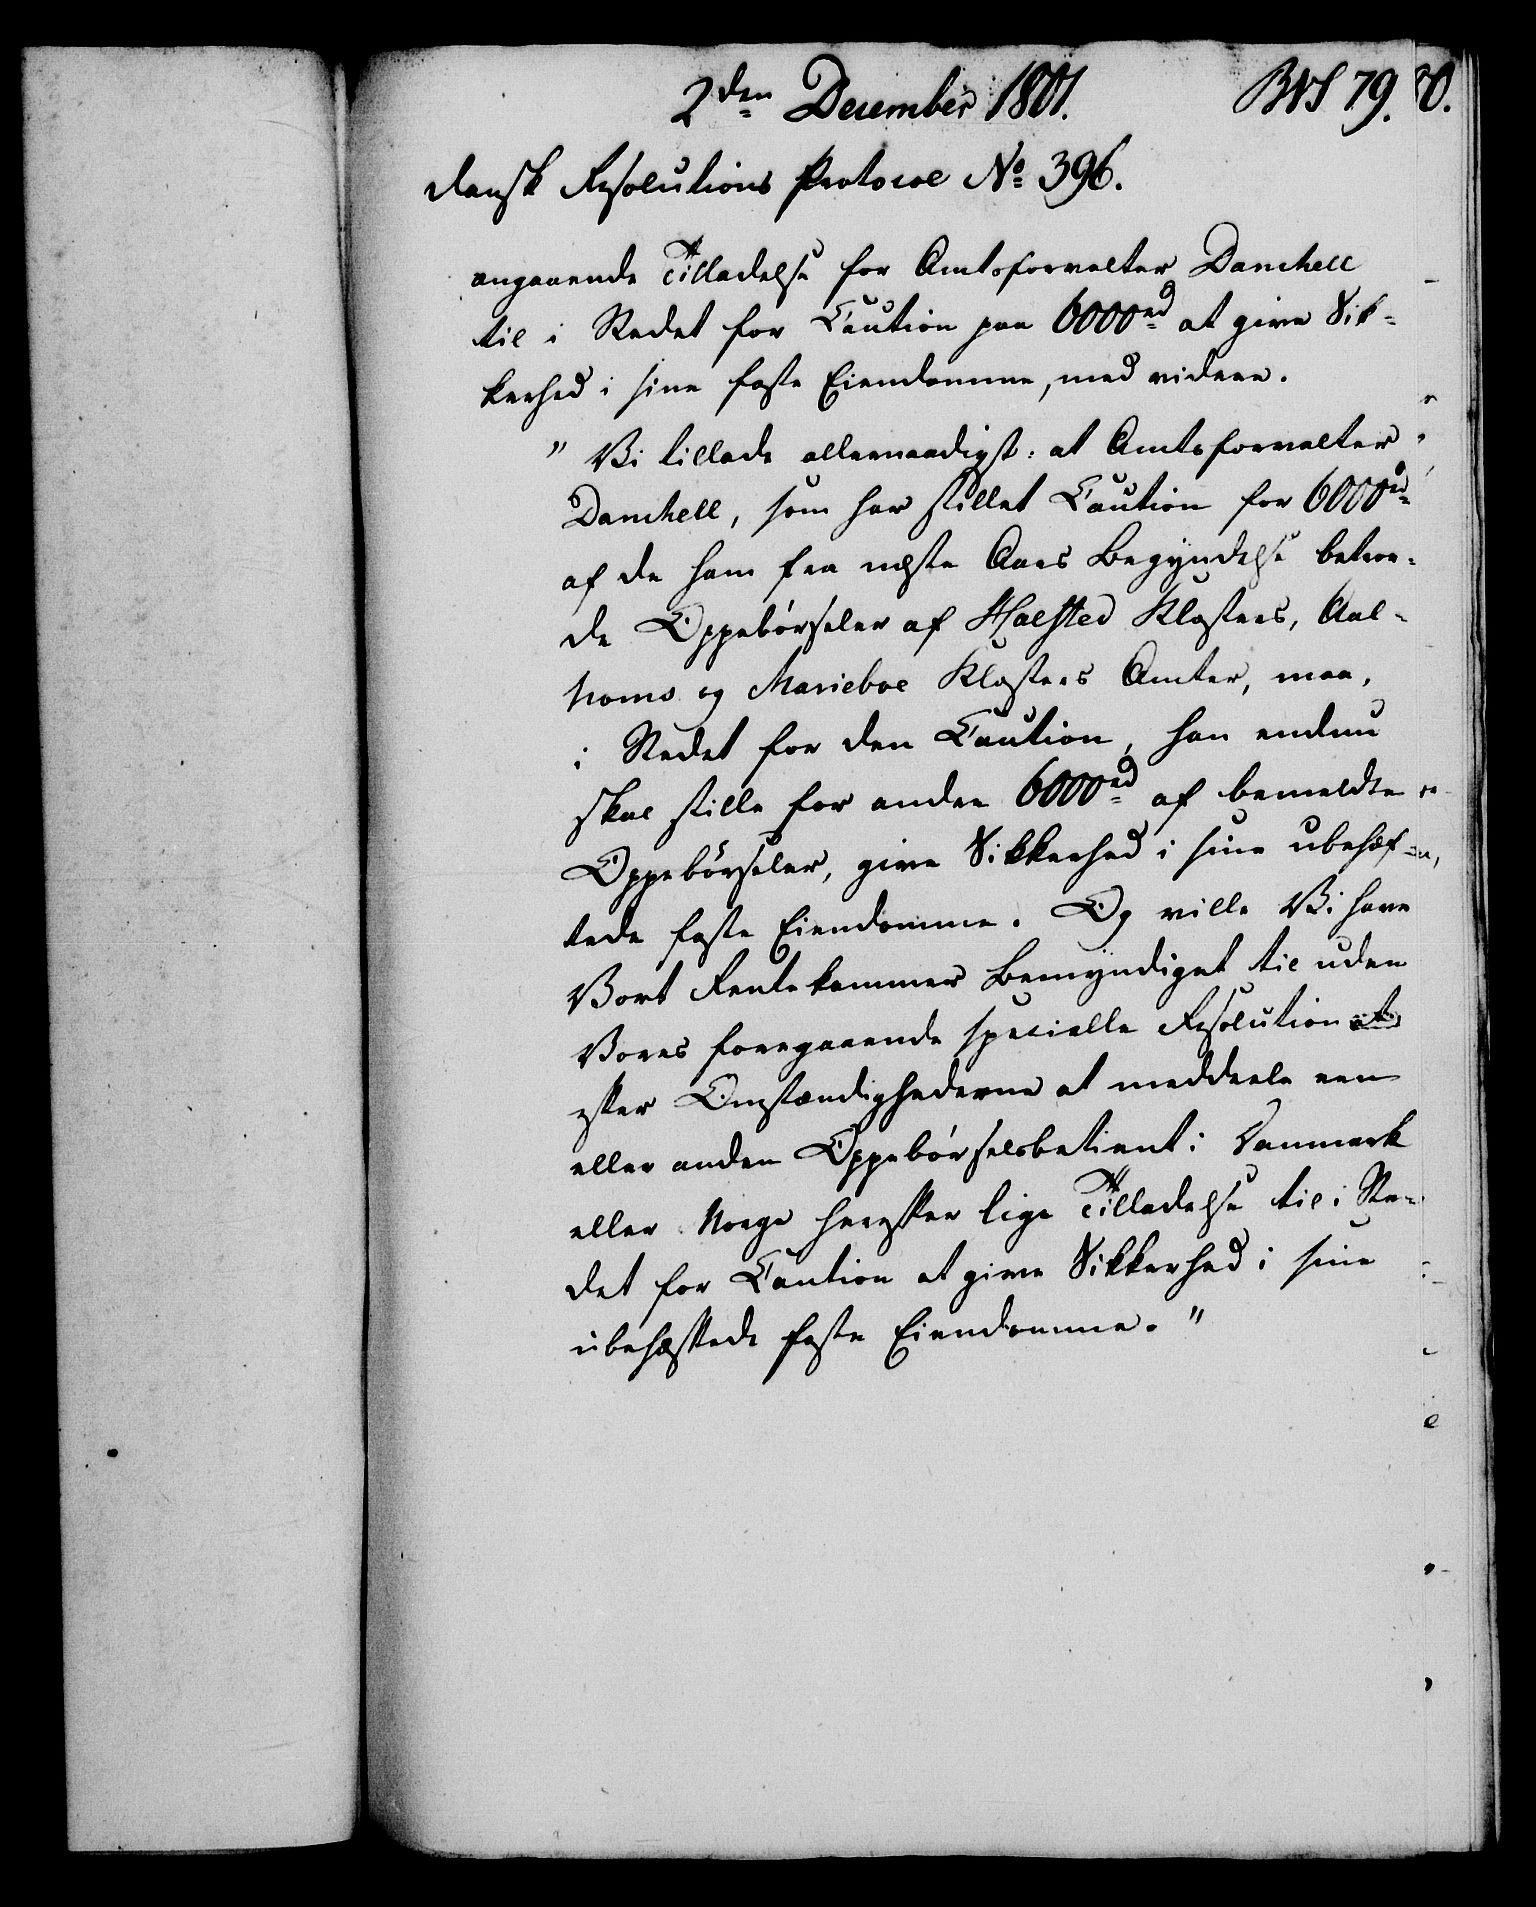 2den December 1801. BNS 79.
dansk Resolutions Protocol No 396.
angaaende Tilladelse for Amtsforvalter Damchell
til i Stedet for Caution paa 6000rd at give Sik-
kerhed i sine faste Eiendomme, med videre.
" Vi tillade allernaadigst: at Amtsforvalter
Damchell, som har stillet Caution for 6000rd
af de ham fra næste Aars Begyndelse betroe-
de Oppebørseler af Halsted Klosters, Aal-
holms og Marieboe Klosters Amter, maa,
i Stedet for den Caution, han endnu
skal stille for andre 6000rd af bemeldte
Oppebørseler, give Sikkerhed i sine ubehæf-
tede faste Eiendomme. Og ville Vi have
Vort Rentekammer bemyndiget til uden
Vores foregaaende specielle Resolution at
efter Omstændighederne at meddeele een
eller anden Oppebørselsbetient i Danmark
eller Norge herefter lige Tilladelse til i Ste-
det for Caution at give Sikkerhed i sine
ubehæftede faste Eiendomme. "